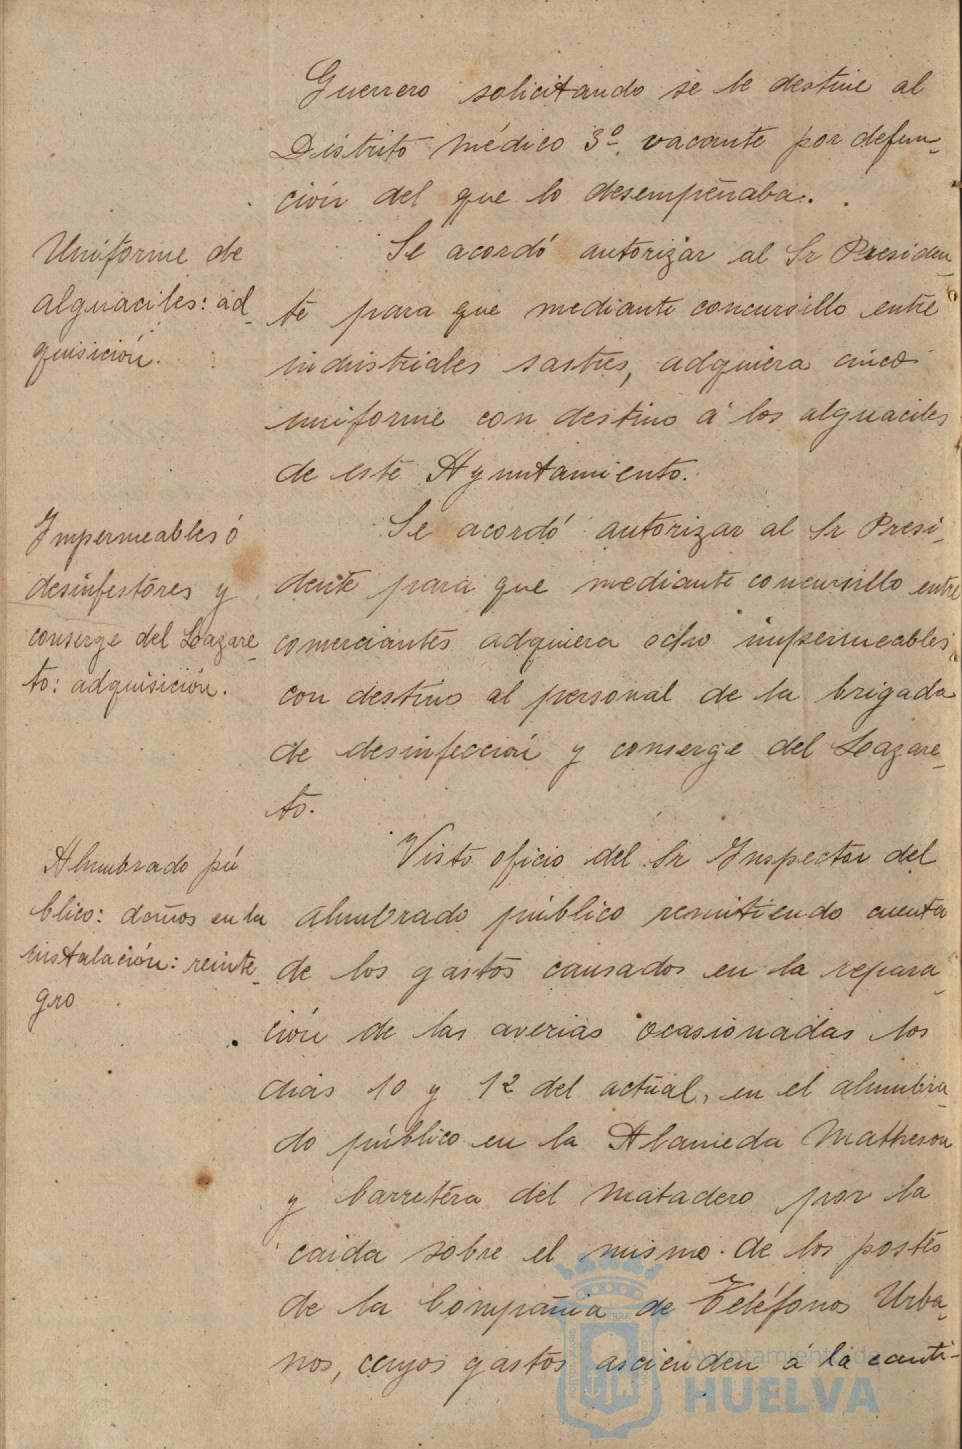 Guerrero solicitando se le destine al
Distrito Médico 3º, vacante por defun-
ción del que lo desempeñaba.
Uniforme de
alguaciles: ad-
quisición.
Se acordó autorizar al Sr Presiden-
te para que mediante concursillo entre
industriales sastres, adquiera cinco
uniforme con destino á los alguaciles
de este Ayuntamiento.
Impermeables ó
desinfestores y
conserge del Lazare-
to: adquisición.
Se acordó autorizar al Sr Presi-
dente para que mediante concursillo entre
comerciantes adquiera ocho impermeables
con destino al personal de la brigada
de desinfección y conserge del Lazare-
to.
Alumbrado pú
blico: daños en la
instalación: reinte-
gro
Visto oficio del Sr Inspector del
alumbrado público remitiendo cuenta
de los gastos causados en la repara-
ción de las averias ocasionadas los
dias 10 y 12 del actual, en el alumbra-
do público en la Alameda Matheson
y Carretera del Matadero por la
caida sobre el mismo de los postes
de la Compañia de Teléfonos Urba-
nos, cuyos gastos ascienden á la canti-
Ayuntamiento de
HUELVA